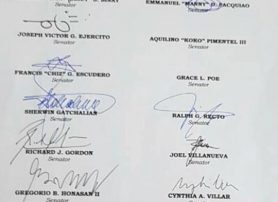 EMMANUEL "MANNY" D. PACQUIAO
Senator
JOSEPH VICTOR G. EJERCITO
Senator
AQUILINO "KOKO" PIMENTEL III
Senator
FRANCIS "CHIZ" G. ESCUDERO
Senator
GRACE L. POE
Senator
SHERWIN GATCHALIAN
Senator
RALPH G. RECTO
Senator
RICHARD J. GORDON
Senator
JOEL VILLANUEVA
Senator
GREGORIO B. HONASAN II
Senator
CYNTHIA A. VILLAR
Senator